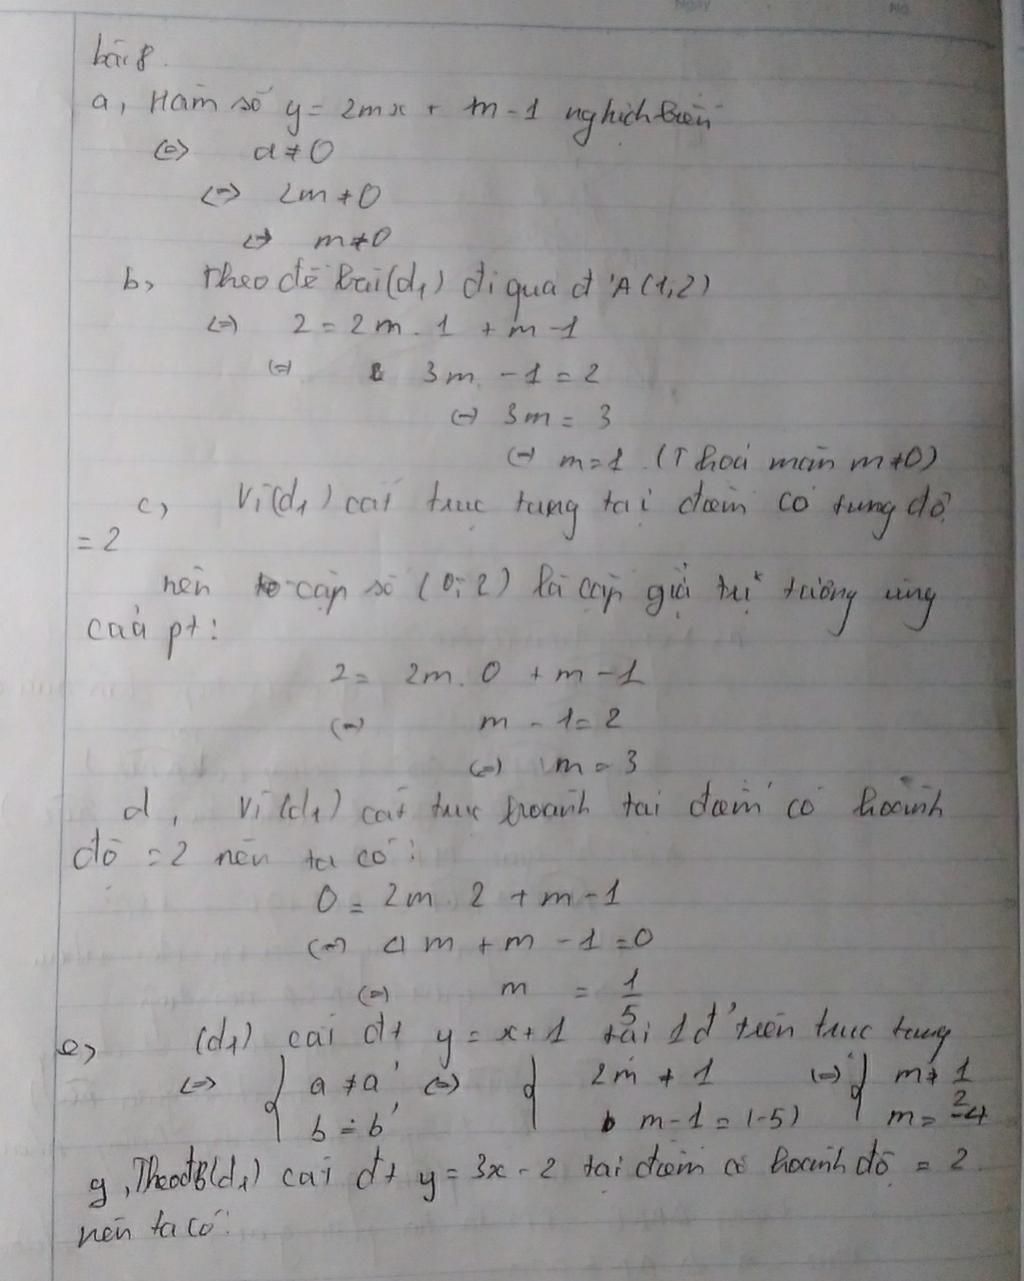 bài 8.
a, Hàm số y = 2mx + m - 1 nghịch biến
<=> a ≠ 0
<=> 2m ≠ 0
<=> m ≠ 0
b, Theo đề bài (d1) đi qua đ' A (1,2)
<=> 2 = 2m . 1 + m - 1
<=> 3m - 1 = 2
<=> 3m = 3
<=> m = 1 (Thoả mãn m ≠ 0)
c, Vì (d1) cắt trục tung tại điểm có tung độ
= 2
nên cặp số (0; 2) là cặp giá trị tương ứng
của pt:
2 = 2m . 0 + m - 1
<=> m - 1 = 2
<=> m = 3
d, Vì (d1) cắt trục hoành tại điểm có hoành
độ = 2 nên ta có:
0 = 2m . 2 + m - 1
<=> 4m + m - 1 = 0
<=> m = 1/5
e, (d1) cắt đt y = x + 1 tại 1 đ' trên trục tung
<=> { a ≠ a' <=> { 2m ≠ 1 <=> { m ≠ 1/2
b = b' m - 1 = (-5) m = -4
g, Theo đb (d1) cắt đt y = 3x - 2 tại điểm có hoành độ = 2
nên ta có: